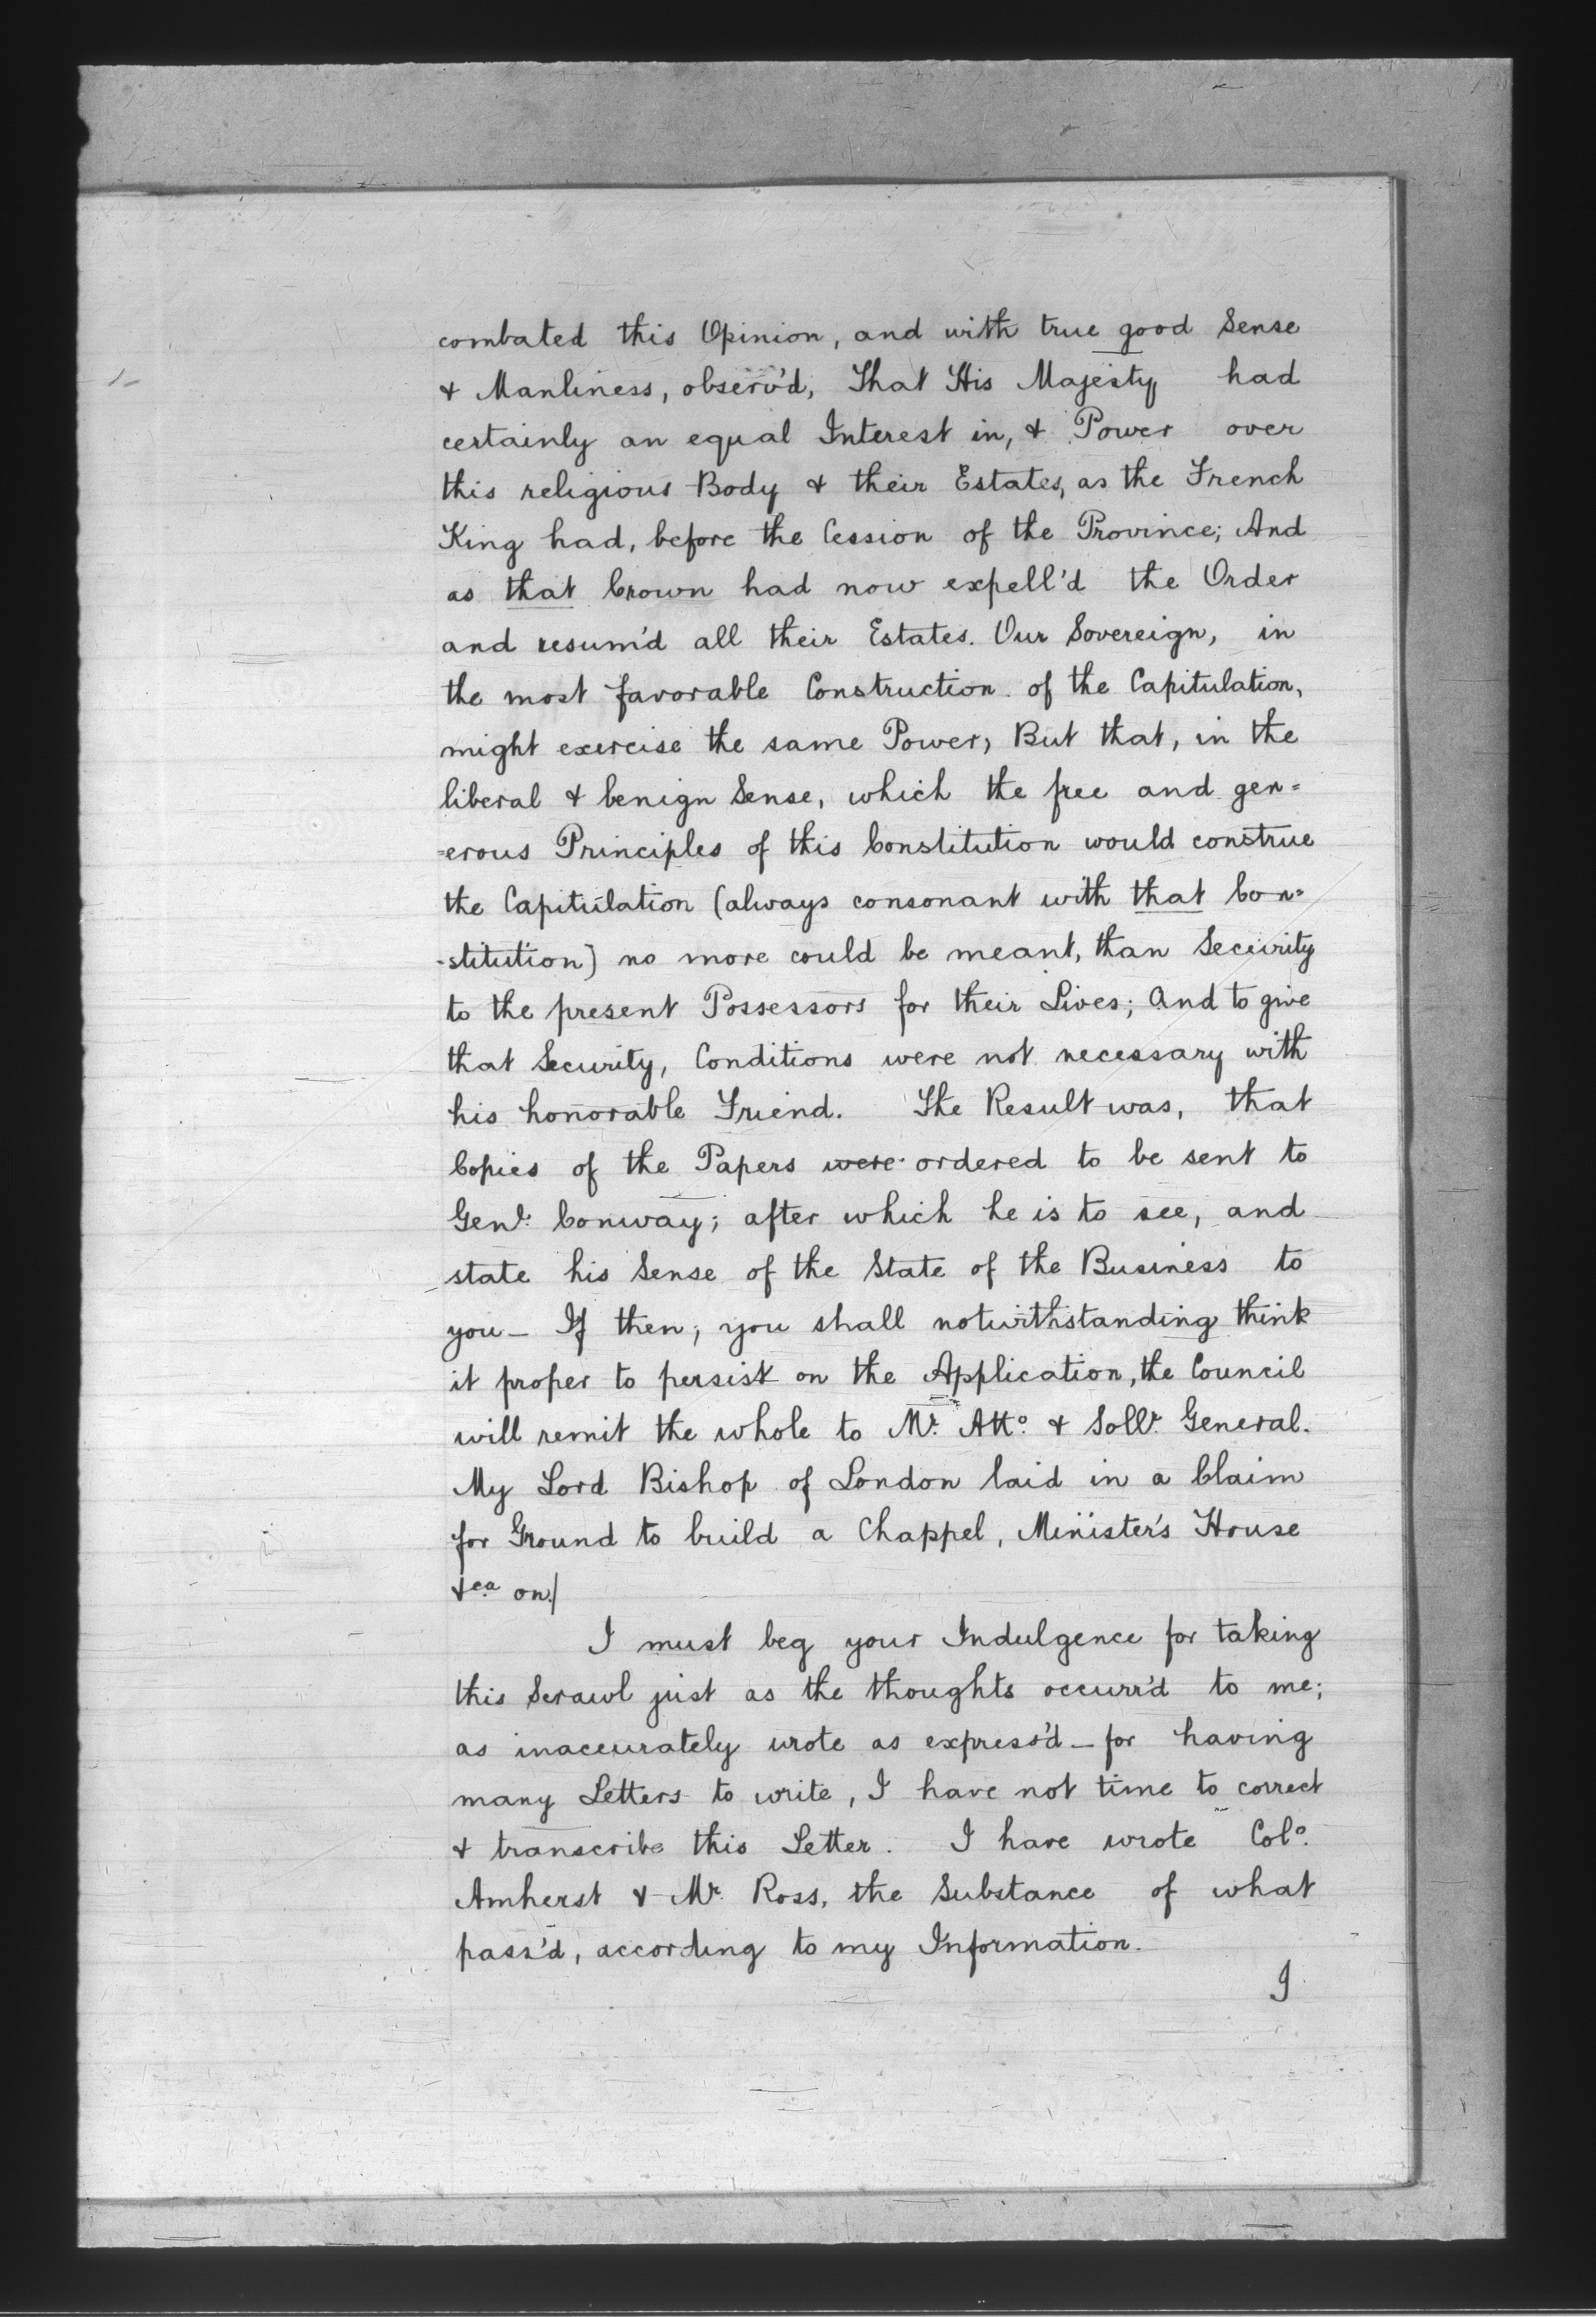 combated this Opinion, and with true good Sense
& Manliness, observ'd, That His Majesty had
certainly an equal Interest in, & Power over
this religious Body & their Estates, as the French
King had, before the Cession of the Province; And
as that Crown had now expell'd the Order
and resum'd all their Estates. Our Sovereign, in
the most favorable Construction of the Capitulation,
might exercise the same Power, But that, in the
liberal & benign Sense, which the free and gen=
=erous Principles of this Constitution would construe
the Capitulation (always consonant with that Con=
-stitution) no more could be meant, than Security
to the present Possessors for their Lives; And to give
that Security, Conditions were not necessary with
his honorable Friend. The Result was, that
Copies of the Papers were ordered to be sent to
Genl. Conway; after which he is to see, and
state his Sense of the State of the Business to
you_ If then, you shall notwithstanding think
it proper to persist on the Application, the Council
will remit the whole to Mr. Atto. & Sollr. General.
My Lord Bishop of London laid in a Claim
for Ground to build a Chappel, Minister's House
&ca on/
I must beg your Indulgence for taking
this Scrawl just as the thoughts occurr'd to me;
as inaccurately wrote as express'd _ for having
many Letters to write, I have not time to correct
& transcribe this Letter. I have wrote Colo.
Amherst & Mr. Ross, the Substance of what
pass'd, according to my Information.
I